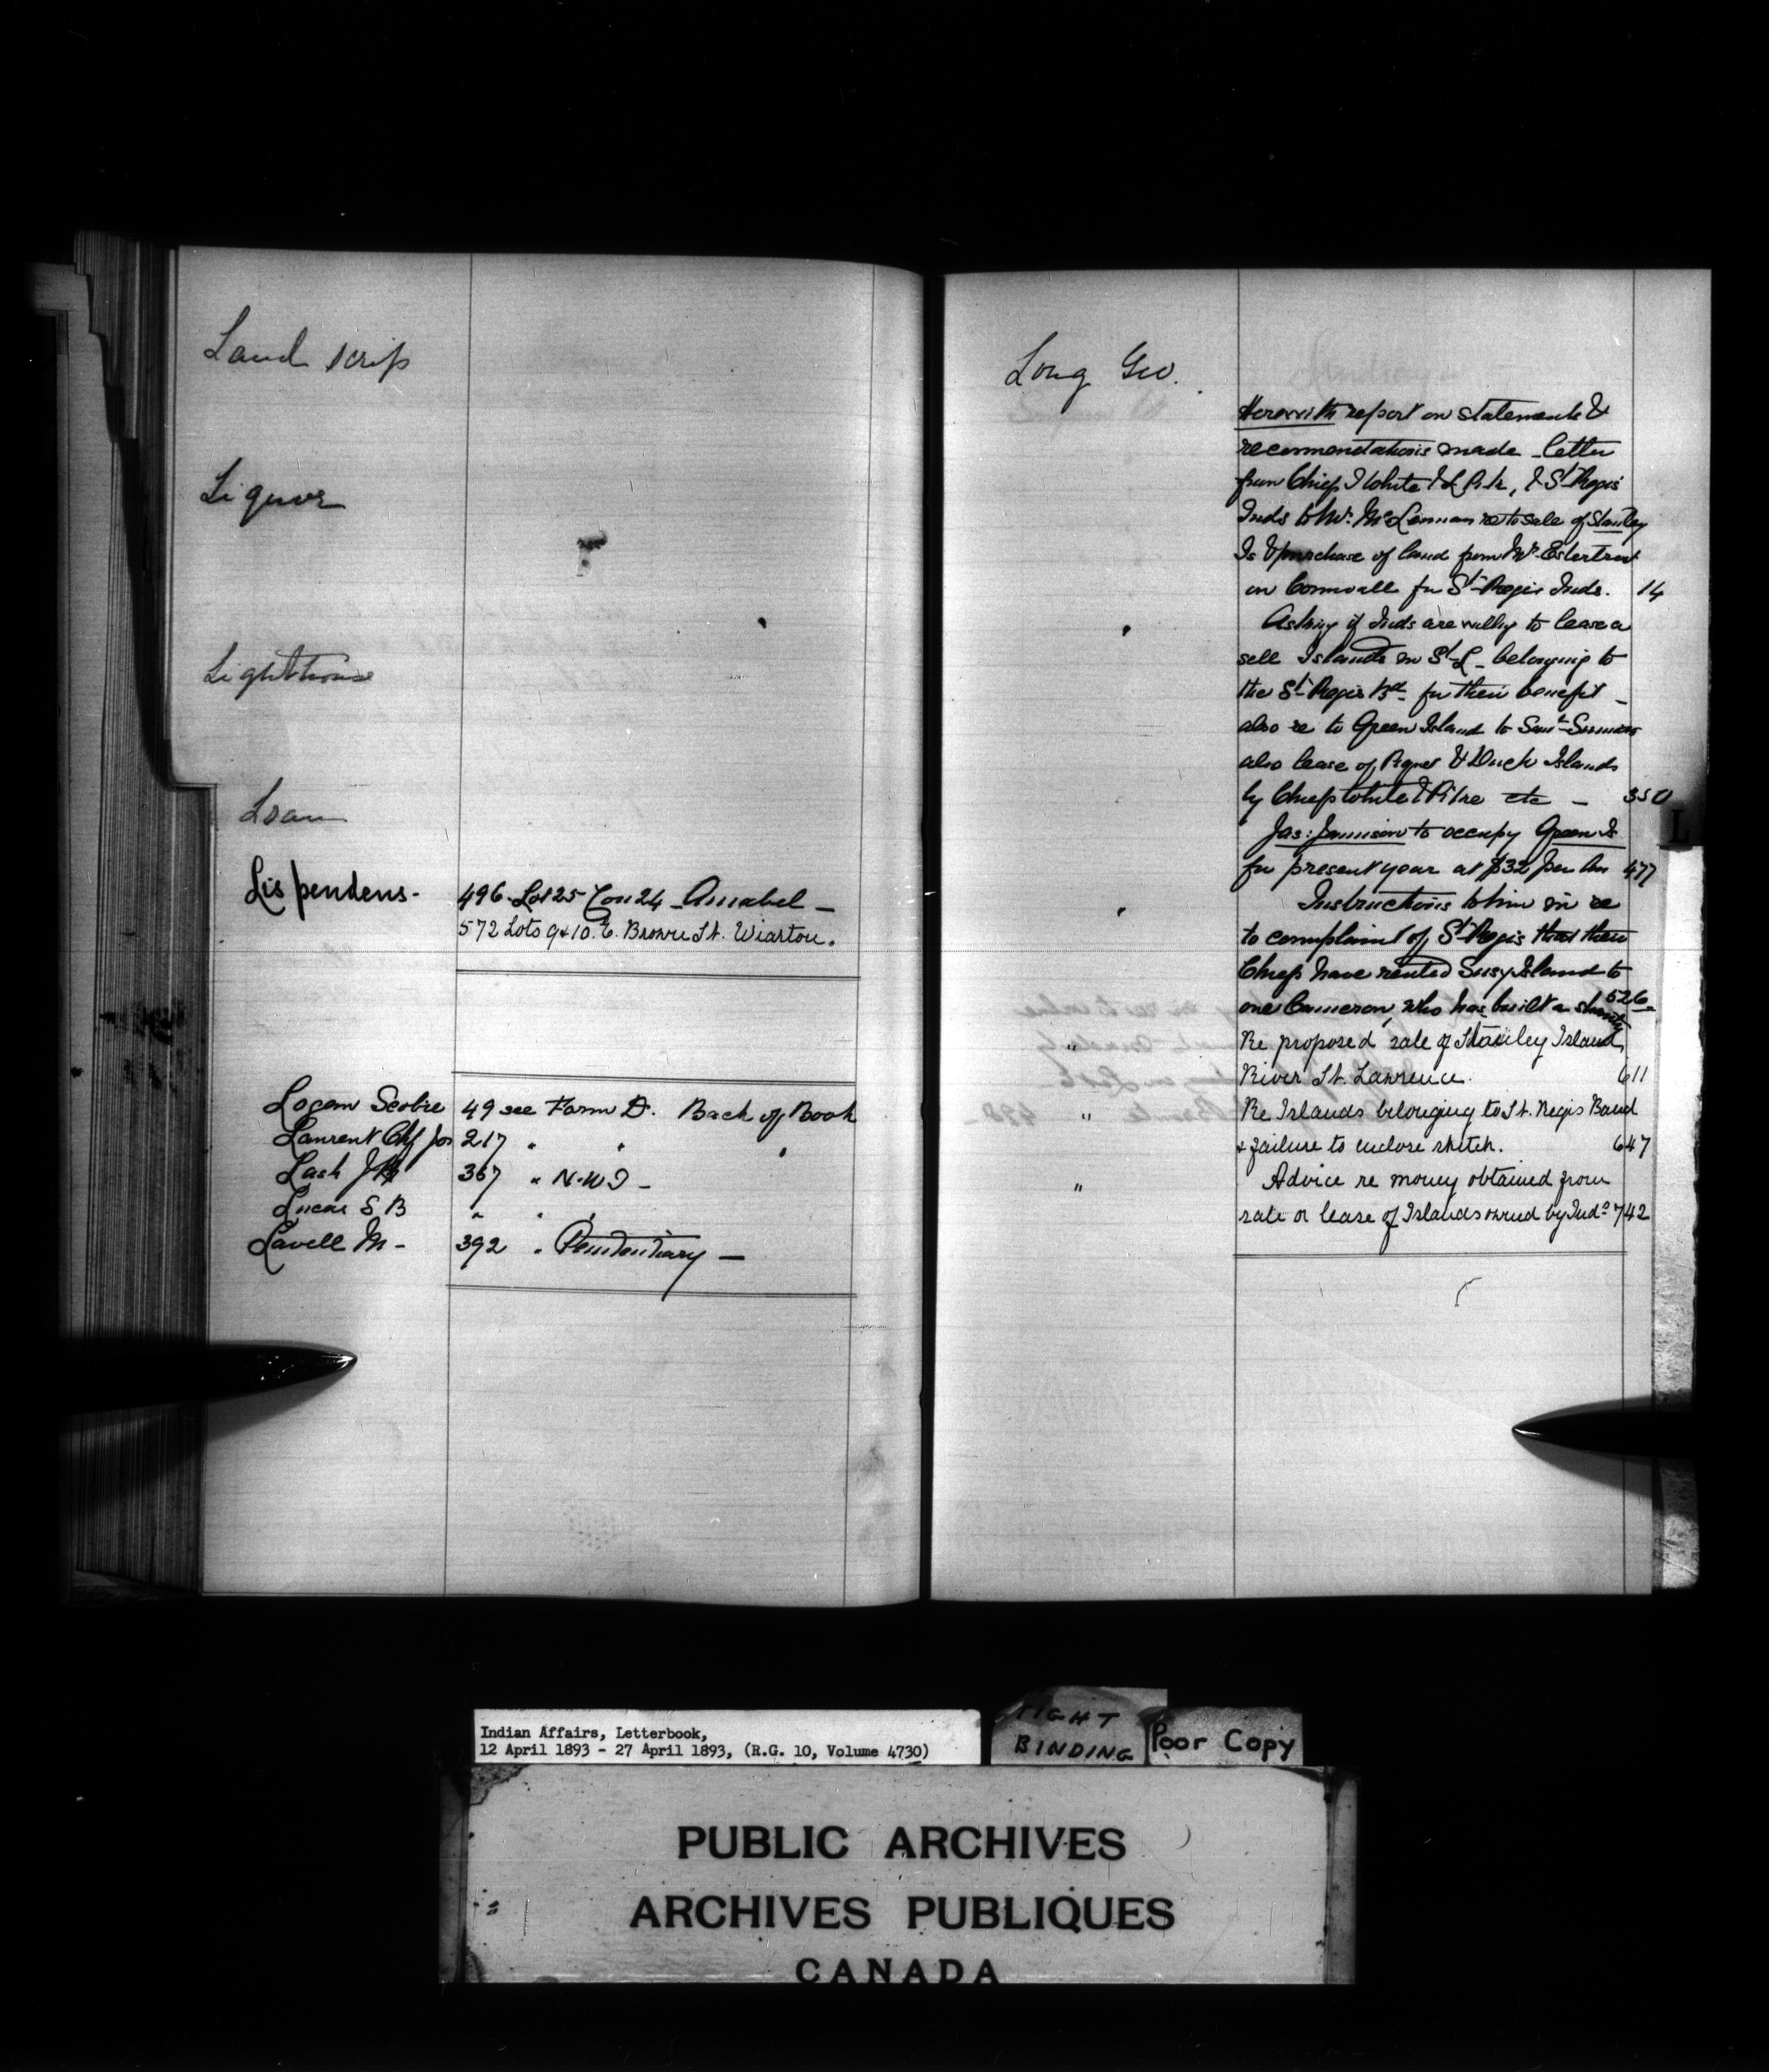 Land scrip
Liquor
Lighthouse
Loan
Lis pendens-
496 - Lot 25 Con 24 - Amabel -
572 Lots 9 & 10. E. Brown St. Wiarton.
Logan Scobie 49 see Form D. Back of Book
Laurent Chf Jos 217 " " "
Lash J 367 " N.W.T -
Lucas S B " " "
Lavell M - 392 " Penitentiary -
Long Geo.
Herewith report on statements &
recommendations made - letter
from Chiefs White & St. Regis
Inds to Mr. McLennan re to sale of Stanley
Is & purchase of land from Mr.
in Cornwall for St. Regis Inds. 14
" Asking if Inds are willing to lease or
sell Islands in St. L - belonging to
the St. Regis Bd. for their benefit -
also re to Green Island to Saml
also lease of & Duck Islands
by Chiefs White & Pitre etc - 350
Jas: Jamison to occupy Green Is
for present year at $32 per An 477
" Instructions to him in re
to complaint of St. Regis that their
Chiefs have rented Susy Island to
one Cameron, who has built a shanty 526
" Re proposed sale of Stanley Island,
River St. Lawrence. 611
" Re Islands belonging to St. Regis Band
& failure to enclose sketch. 647
" Advice re money obtained from
sale or lease of Islands owned by Inds 742
L
Indian Affairs, Letterbook,
12 April 1893 - 27 April 1893, (R.G. 10, Volume 4730)
TIGHT
BINDING
Poor Copy
PUBLIC ARCHIVES
ARCHIVES PUBLIQUES
CANADA